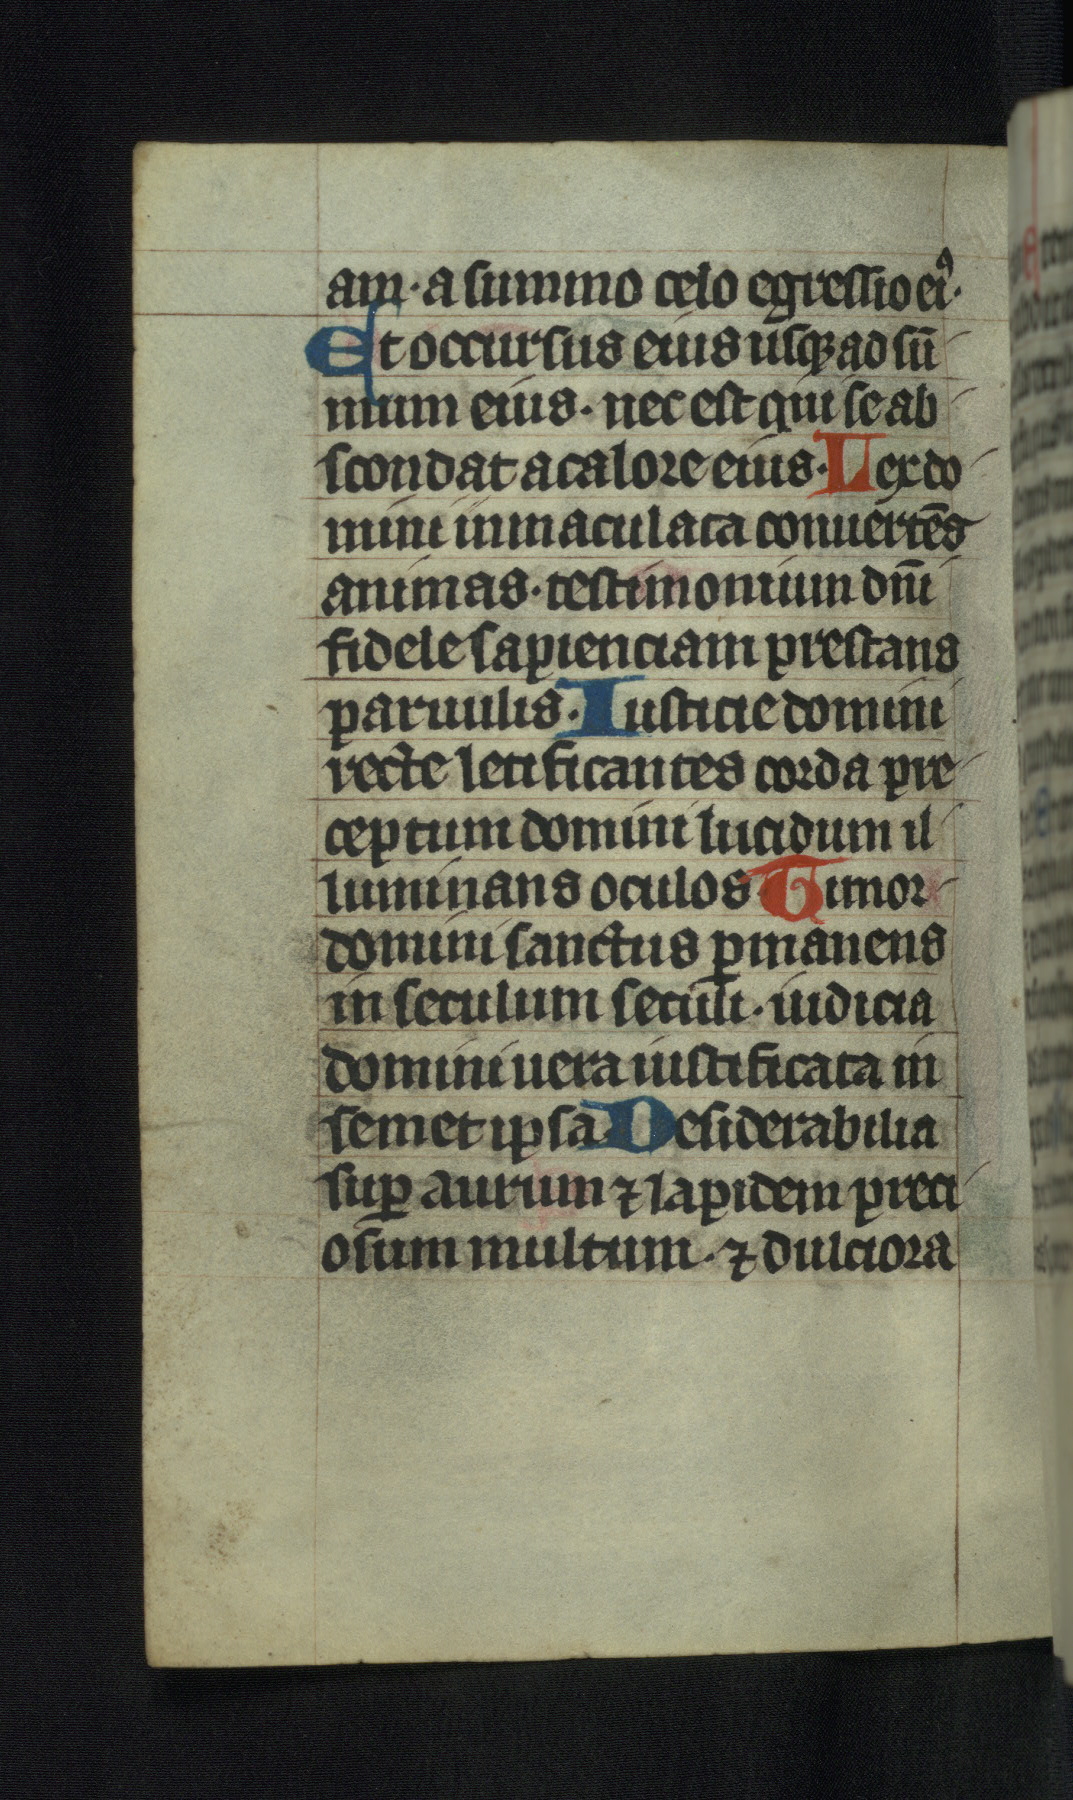 am · a summo celo egressio eiꝰ ·
Et occursus eius usqꝫ ad su̅
mum eius · nec est qui se ab
scondat a calore eius · Lex do
mini inmaculata conuerte̅s
animas · testimonium dn̅i
fidele sapienciam prestans
paruulis · Iusticie domini
recte letificantes corda pre
ceptum domini lucidum il
luminans oculos · Timor
domini sanctus ꝑmanens
in seculum seculi · iudicia
domini uera iustificata in
semet ipsa · Desiderabilia
suꝑ aurum ⁊ lapidem preci
osum multum · ⁊ dulciora